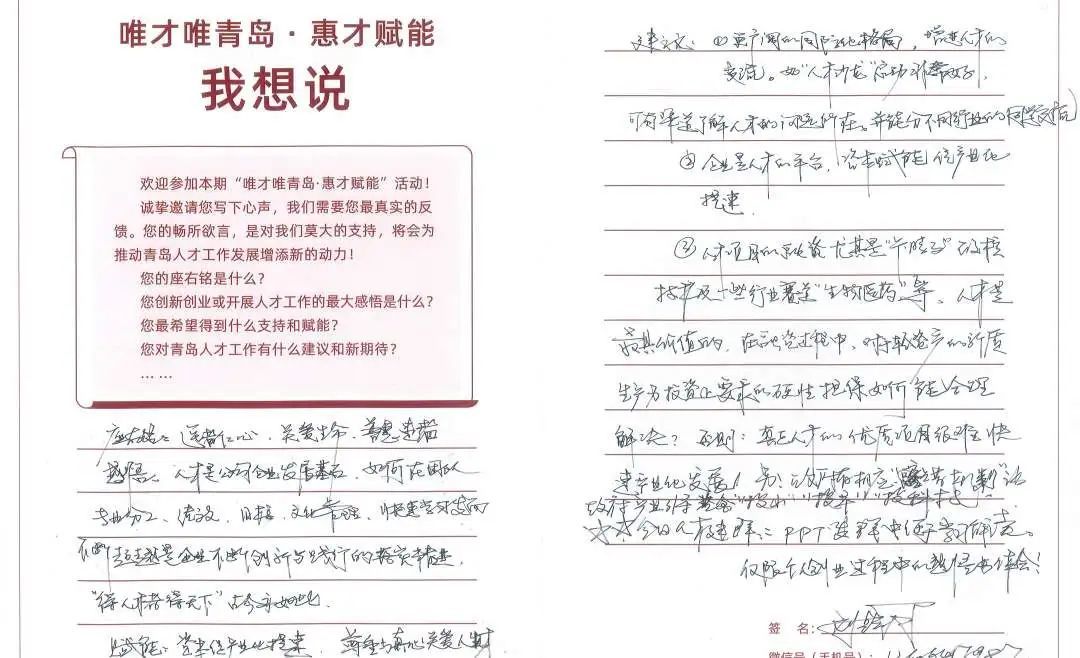 唯才唯青岛·惠才赋能
我想说
欢迎参加本期“唯才唯青岛·惠才赋能”活动！
诚挚邀请您写下心声，我们需要您最真实的反
馈。您的畅所欲言，是对我们莫大的支持，将会为
推动青岛人才工作发展增添新的动力！
您的座右铭是什么？
您创新创业或开展人才工作的最大感悟是什么？
您最希望得到什么支持和赋能？
您对青岛人才工作有什么建议和新期待？
……
座右铭：医者仁心、关爱生命、善思
感悟：人才是公司企业发展基石，如何在团队
专业分工、目标、文化管理、
企业不断创新与
“得人才者得天下”古今亦如此。
赋能：资本促产业化提速 尊重与真心关爱人才
建议：①更广阔的国际化格局，增进人才的
交流。如“人才沙龙”活动非常好，
可有渠道了解人才的问题所在。并能分不同行业的
②企业是人才的平台，资本赋能促产业化
提速
③人才项目的融资尤其是“卡脖子”的核
技术及一些行业赛道“生物医药”等，人才是
最具价值的，在融资过程中，对于轻资产的新质
生产力投资上要求的硬性担保如何能合理
解决？否则：真正人才的优质项目很难快
速产业化发展！
政府产业引导基金“投小”“投早”“投科技”
今日人才建群，PPT发群中便于学习
仅限个人创业过程中的体会！
签 名：
微信号（手机号）：